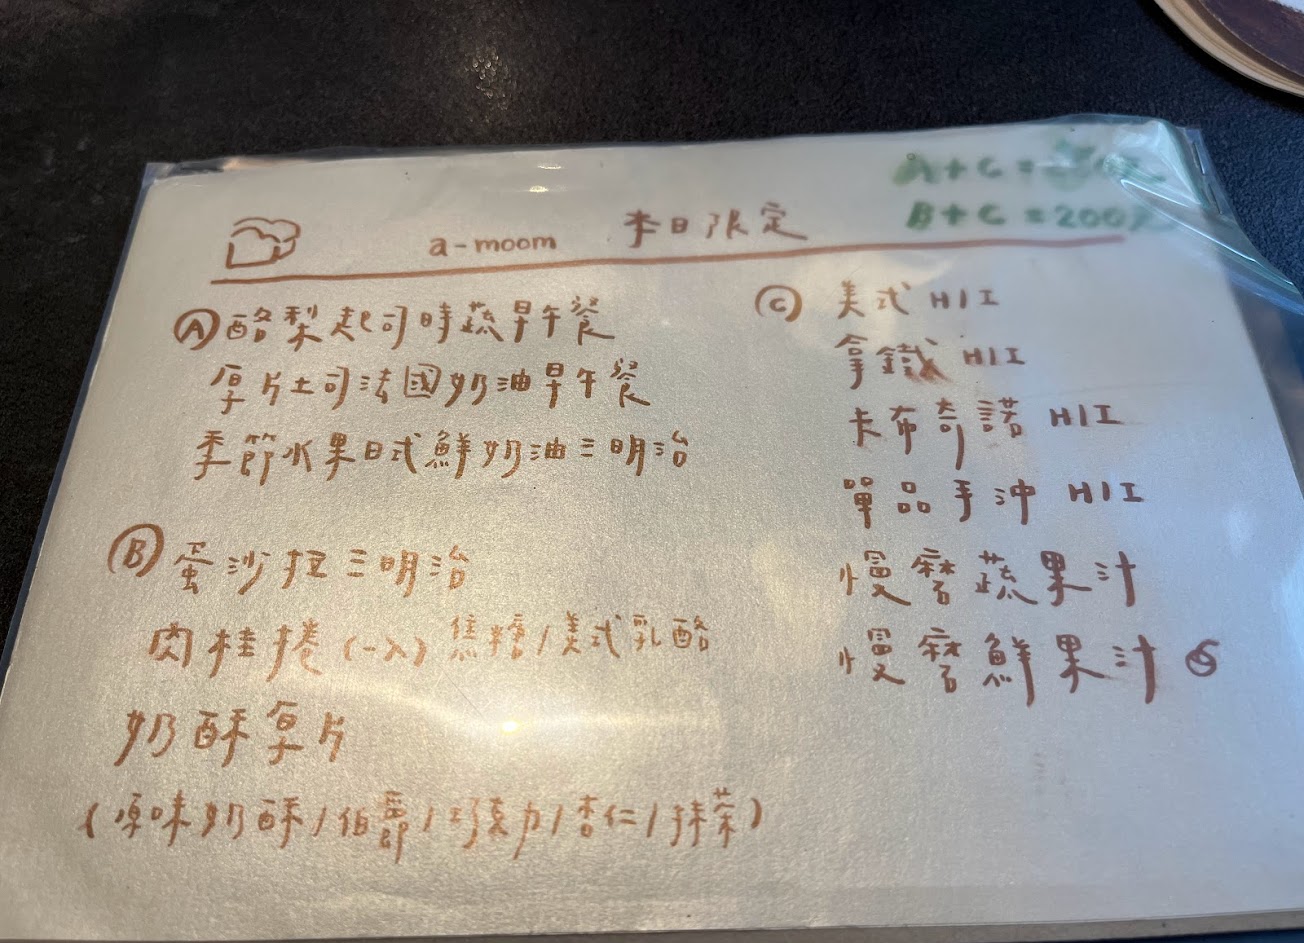 A + C =
B + C = 200
a-moom 本日限定
Ⓐ 酪梨起司時蔬早午餐
厚片土司法國奶油早午餐
季節水果日式鮮奶油三明治
Ⓑ 蛋沙拉三明治
肉桂捲(一入) 焦糖/美式乳酪
奶酥厚片
(原味奶酥/伯爵/巧克力/杏仁/抹茶)
Ⓒ 美式 H/I
拿鐵 H/I
卡布奇諾 H/I
單品手沖 H/I
慢磨蔬果汁
慢磨鮮果汁